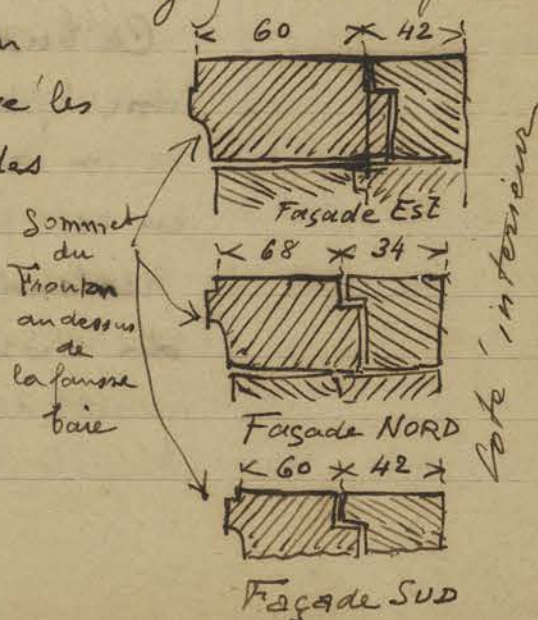 n
é les
des
< 60 × 42 >
Façade EST
Sommet
du
Fronton
au dessus
de
la fausse
baie
< 68 × 34 >
Façade NORD
< 60 × 42 >
Façade SUD
Coté intérieur